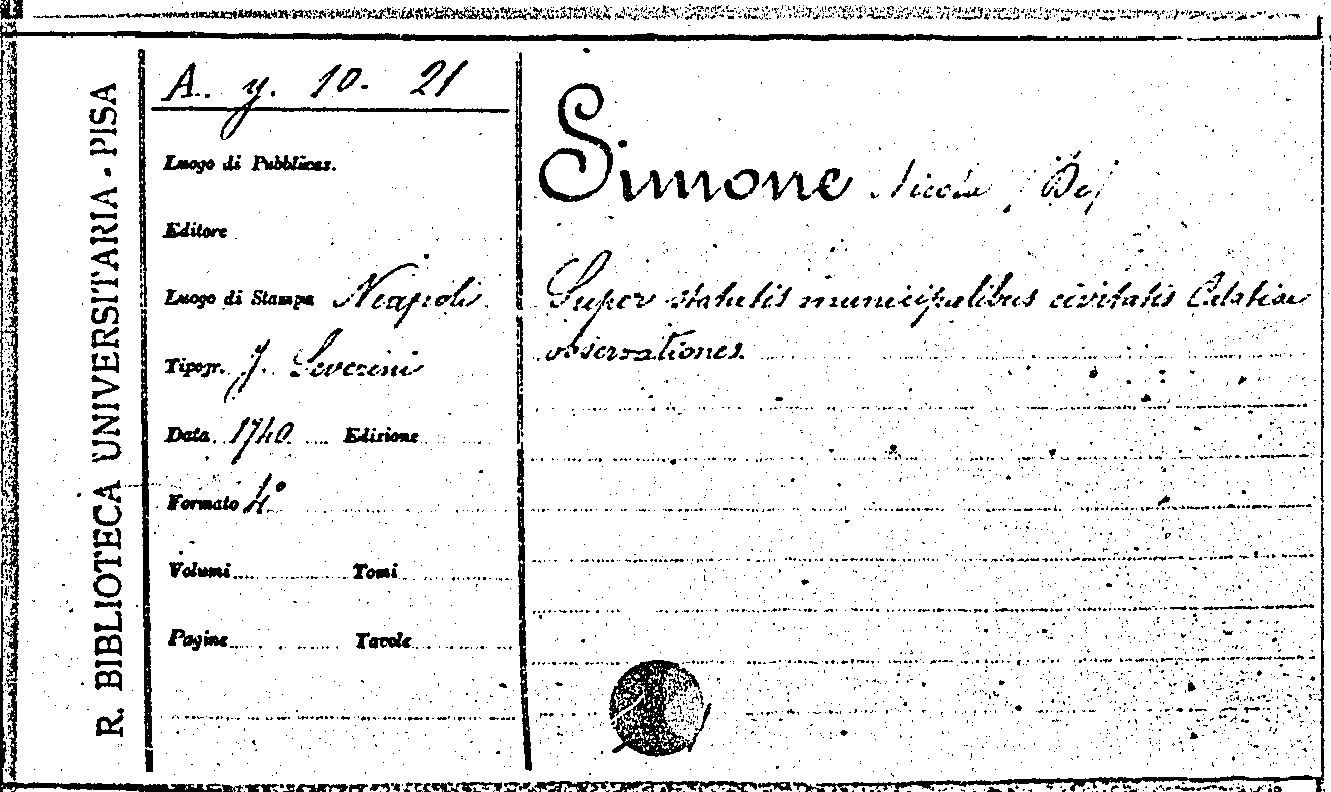 R. BIBLIOTECA UNIVERSITARIA - PISA
A. y. 10. 21
Luogo di Pubblicaz.
Editore
Luogo di Stampa Neapoli
Tipogr. J. Severini
Data 1740 Edizione
Formato 4°
Volumi Tomi
Pagine Tavole
Simone Nicola (De)
Super statutis municipalibus civitatis
observationes